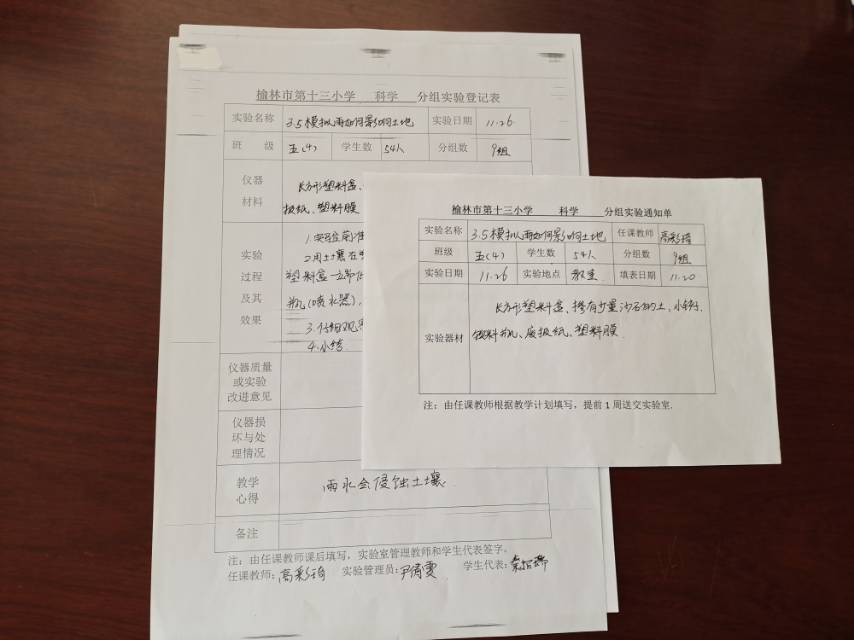 榆林市第十三小学 科学 分组实验登记表
实验名称 3.5模拟雨如何影响土地 实验日期 11.26
班 级 五(4) 学生数 54人 分组数 9组
仪器
材料
长方形塑料盒、
报纸、塑料膜
实验
过程
及其
效果
2.用土壤在
塑料盒一端
瓶(喷水器),
3.仔细观
4.小结
仪器质量
或实验
改进意见
仪器损
坏与处
理情况
教学
心得
雨水会侵蚀土壤
备注
注:由任课教师课后填写,实验室管理教师和学生代表签字。
任课教师:高彩琦 实验管理员:尹倩雯 学生代表:
榆林市第十三小学 科学 分组实验通知单
实验名称 3.5模拟雨如何影响土地 任课教师 高彩琦
班级 五(4) 学生数 54人 分组数 9组
实验日期 11.26 实验地点 教室 填表日期 11.20
实验器材
长方形塑料盒、掺有少量沙石的土、小铲、
饮料瓶、废报纸、塑料膜
注:由任课教师根据教学计划填写,提前1周送交实验室.